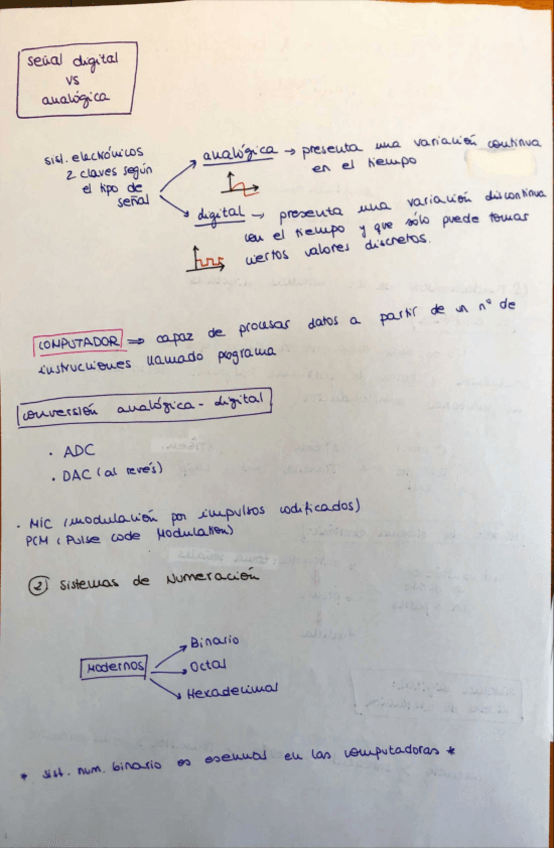 señal digital
vs
analógica
sist. electrónicos
2 claves según
el tipo de
señal
analógica → presenta una variación continua
en el tiempo
digital → presenta una variación discontinua
con el tiempo y que sólo puede tomar
ciertos valores discretos.
COMPUTADOR ⇒ capaz de procesar datos a partir de un nº de
instrucciones llamado programa
conversión analógica - digital
· ADC
· DAC (al revés)
· MIC (modulación por impulsos codificados)
PCM (Pulse code Modulation)
② Sistemas de Numeración
Modernos
→ Binario
→ Octal
→ Hexadecimal
* sist. num. binario es esencial en las computadoras *